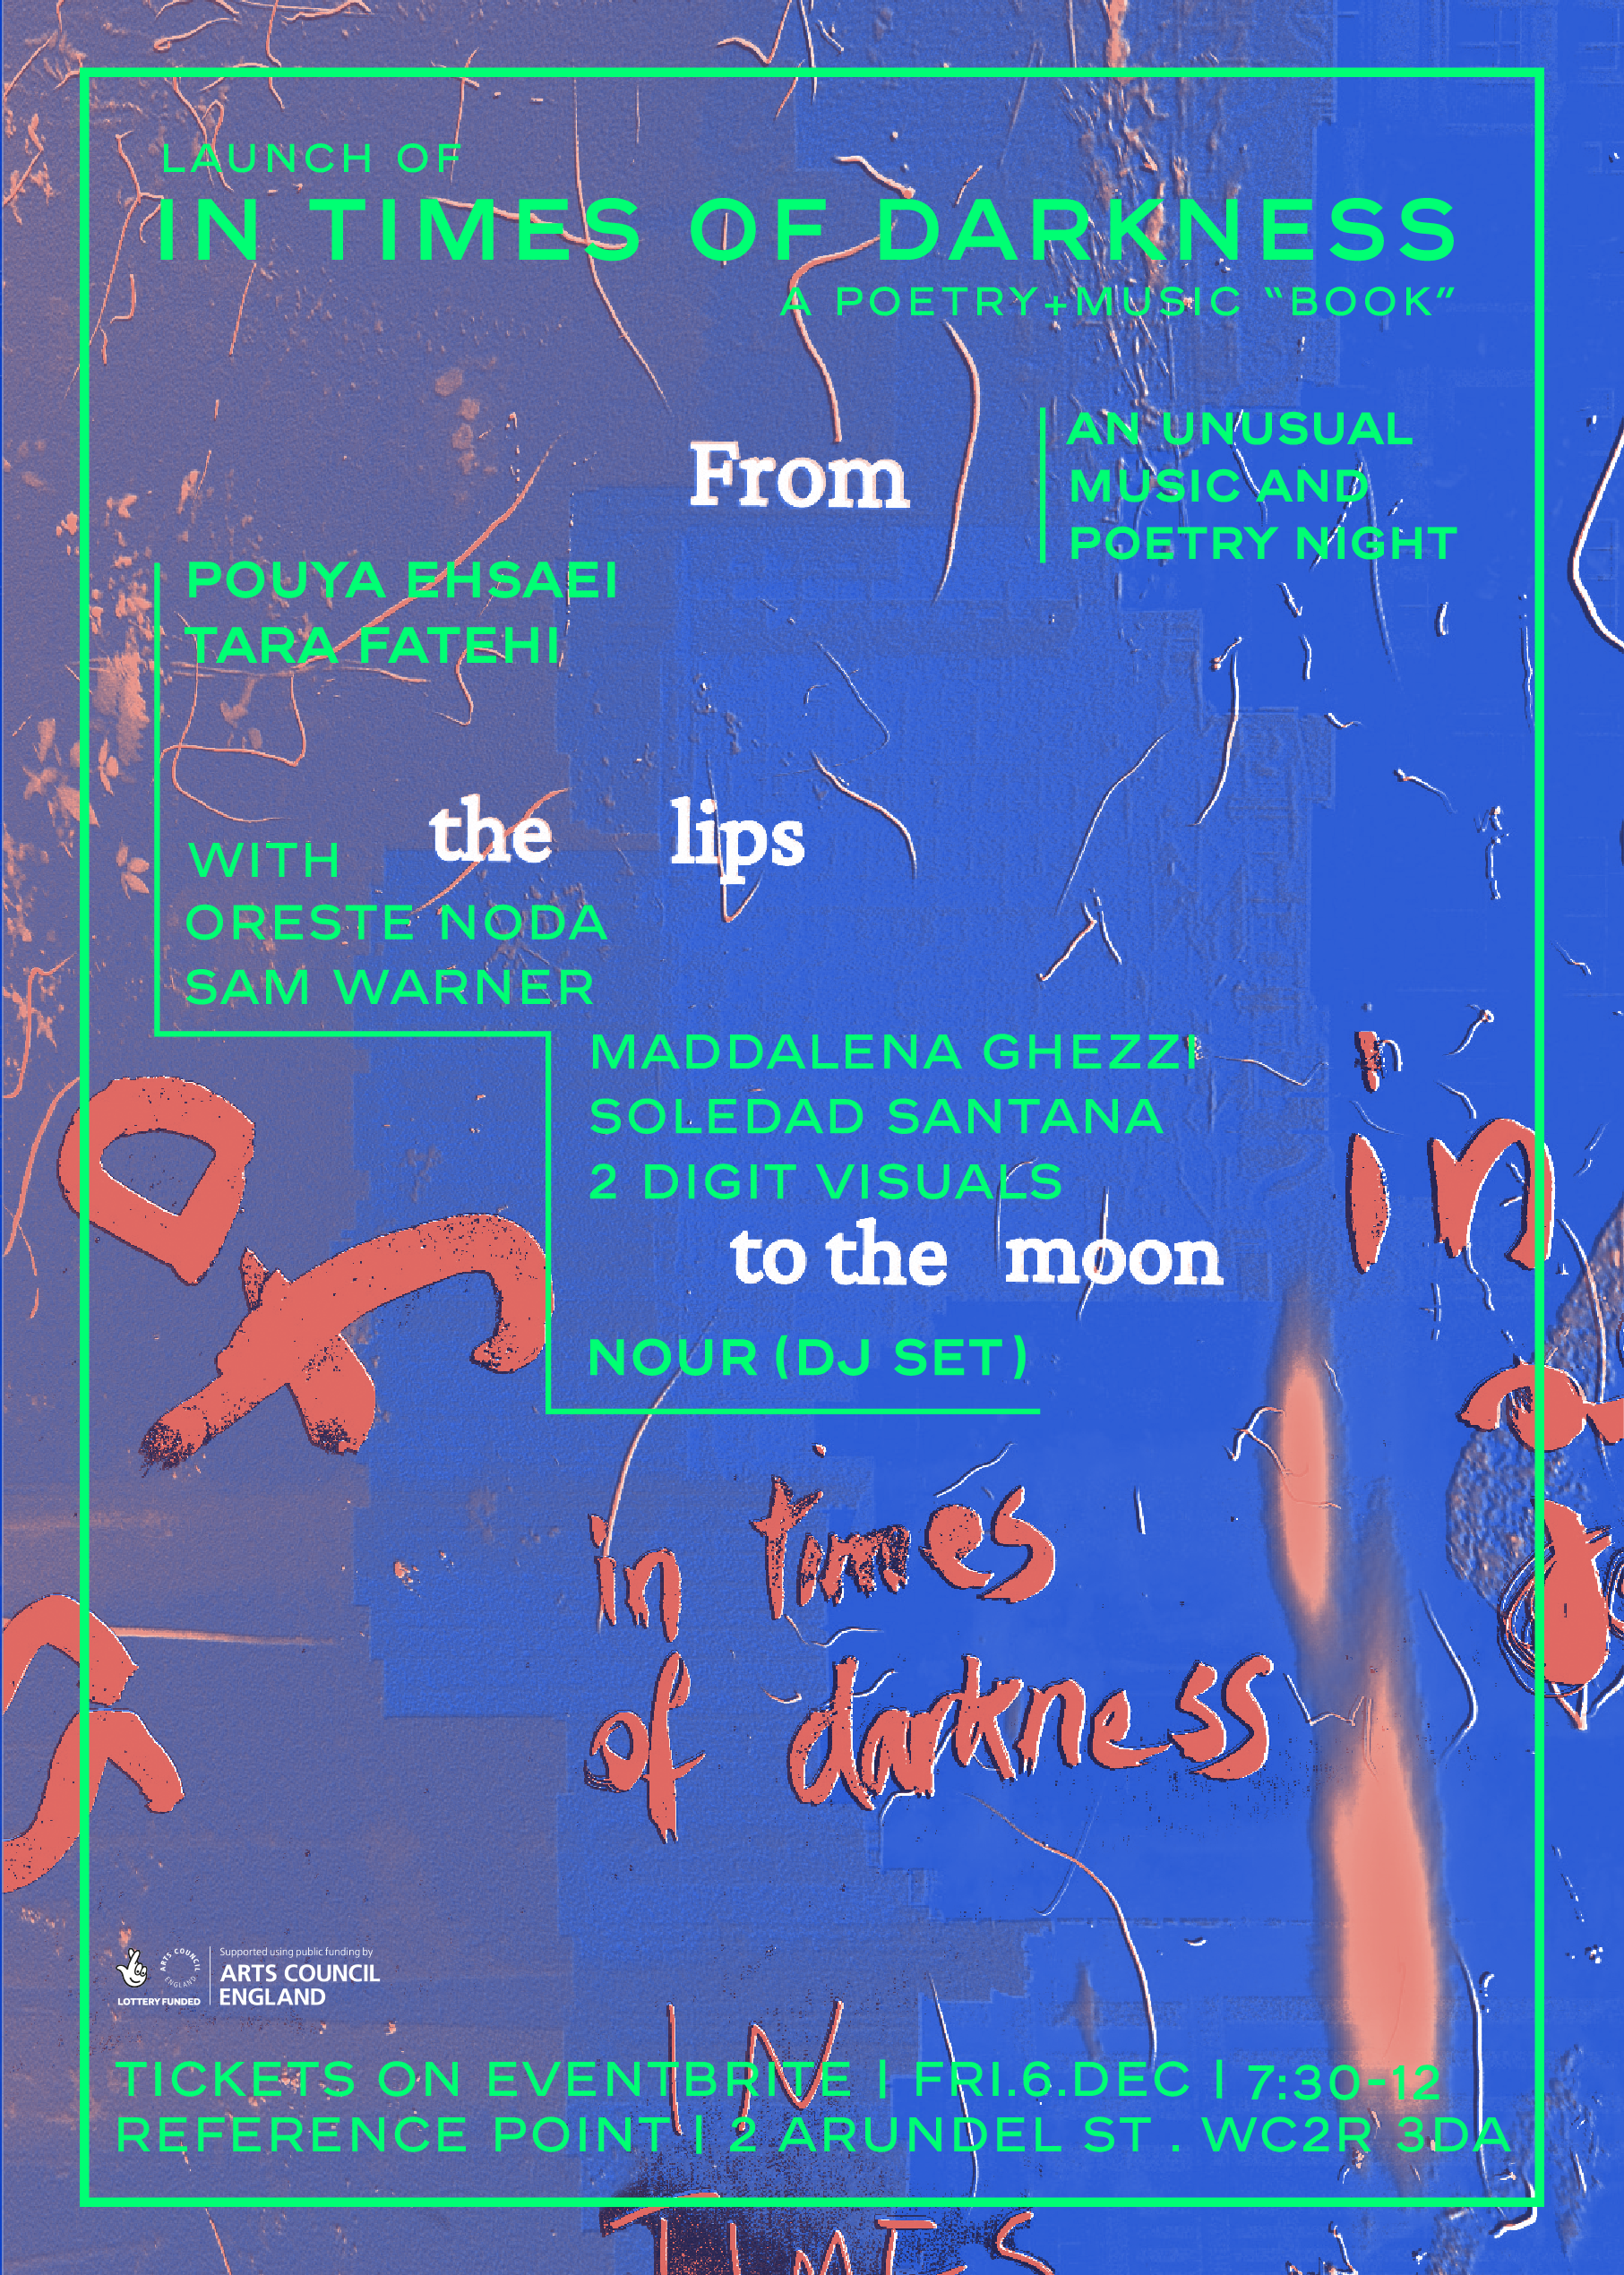 LAUNCH OF
IN TIMES OF DARKNESS
A POETRY+MUSIC “BOOK”
From
AN UNUSUAL
MUSIC AND
POETRY NIGHT
POUYA EHSAEI
TARA FATEHI
the lips
WITH
ORESTE NODA
SAM WARNER
MADDALENA GHEZZI
SOLEDAD SANTANA
2 DIGIT VISUALS
in
to the moon
NOUR (DJ SET)
in times
of darkness
Supported using public funding by
ARTS COUNCIL
ENGLAND
ARTS COUNCIL ENGLAND
LOTTERY FUNDED
IN
TICKETS ON EVENTBRITE | FRI.6.DEC | 7:30-12
REFERENCE POINT | 2 ARUNDEL ST . WC2R 3DA
TIMES